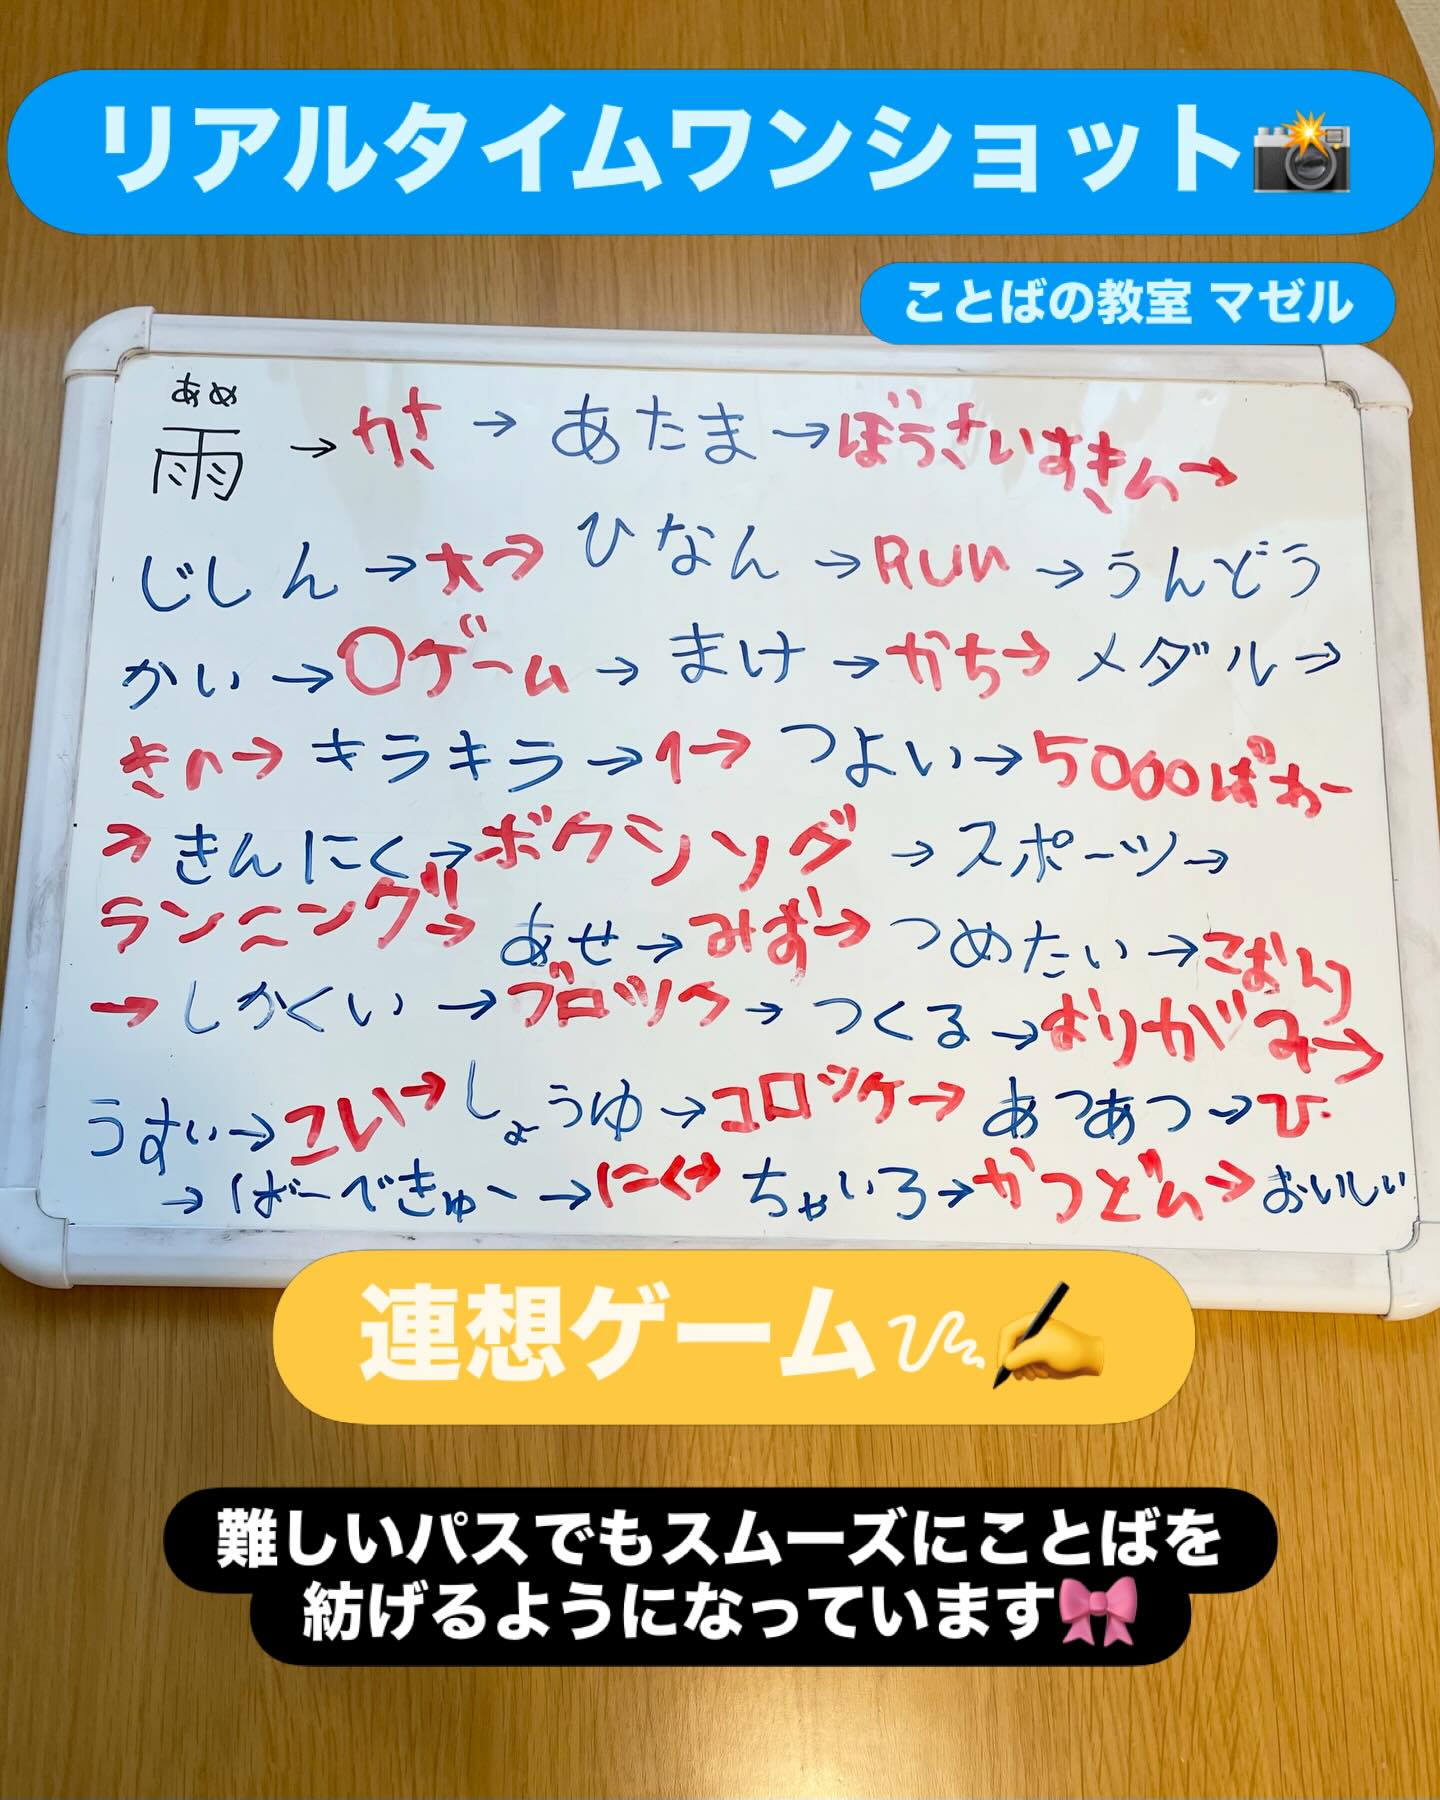 リアルタイムワンショット📸
ことばの教室 マゼル
あめ
雨 → かさ → あたま → ぼうさいずきん →
じしん → 大 → ひなん → RUN → うんどう
かい → 〇ゲーム → まけ → かち → メダル →
きん → キラキラ → 1 → つよい → 5000ぱわー
→ きんにく → ボクシング → スポーツ →
ランニング → あせ → みず → つめたい → こおり
→ しかくい → ブロック → つくる → おりがみ →
うすい → こい → しょうゆ → コロッケ → あつあつ → ひ
→ ばーべきゅー → にく → ちゃいろ → かつどん → おいしい
連想ゲーム✍️
難しいパスでもスムーズにことばを
紡げるようになっています🎀